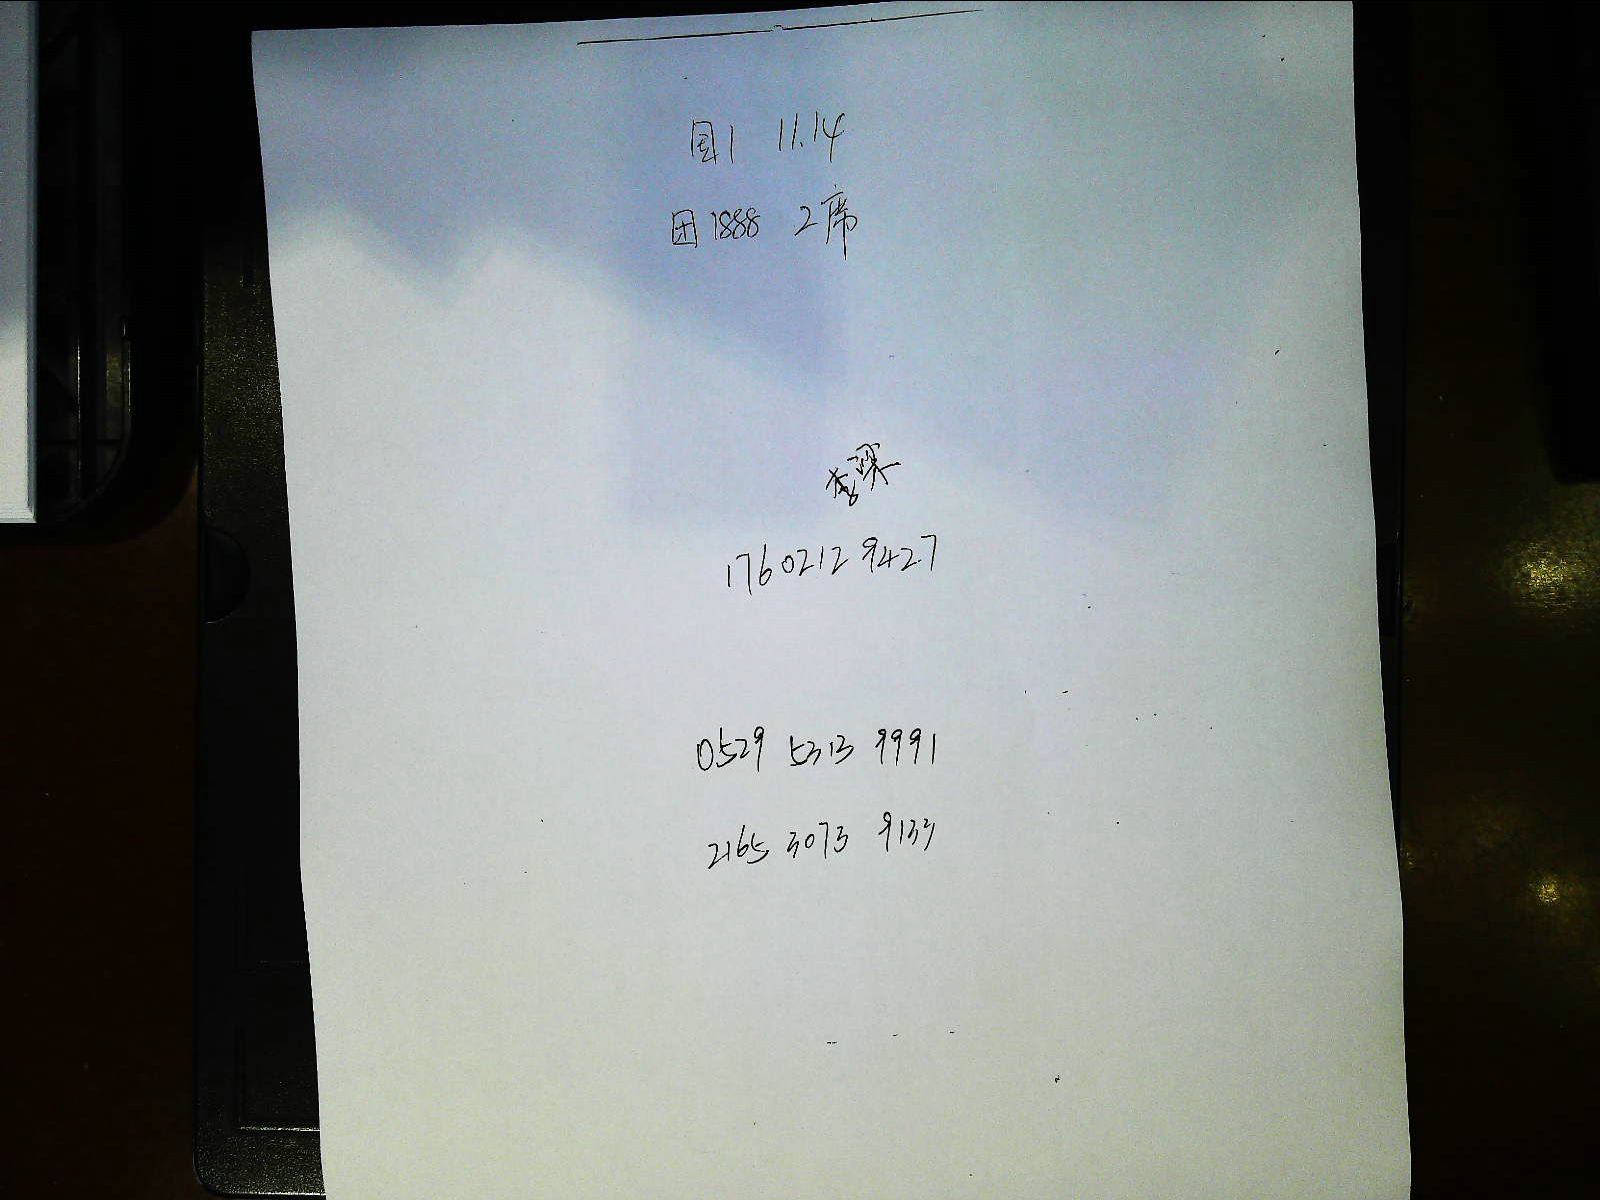 国1 11.14
团1888 2席
李
17602129427
0529 5313 9991
2165 3073 9133